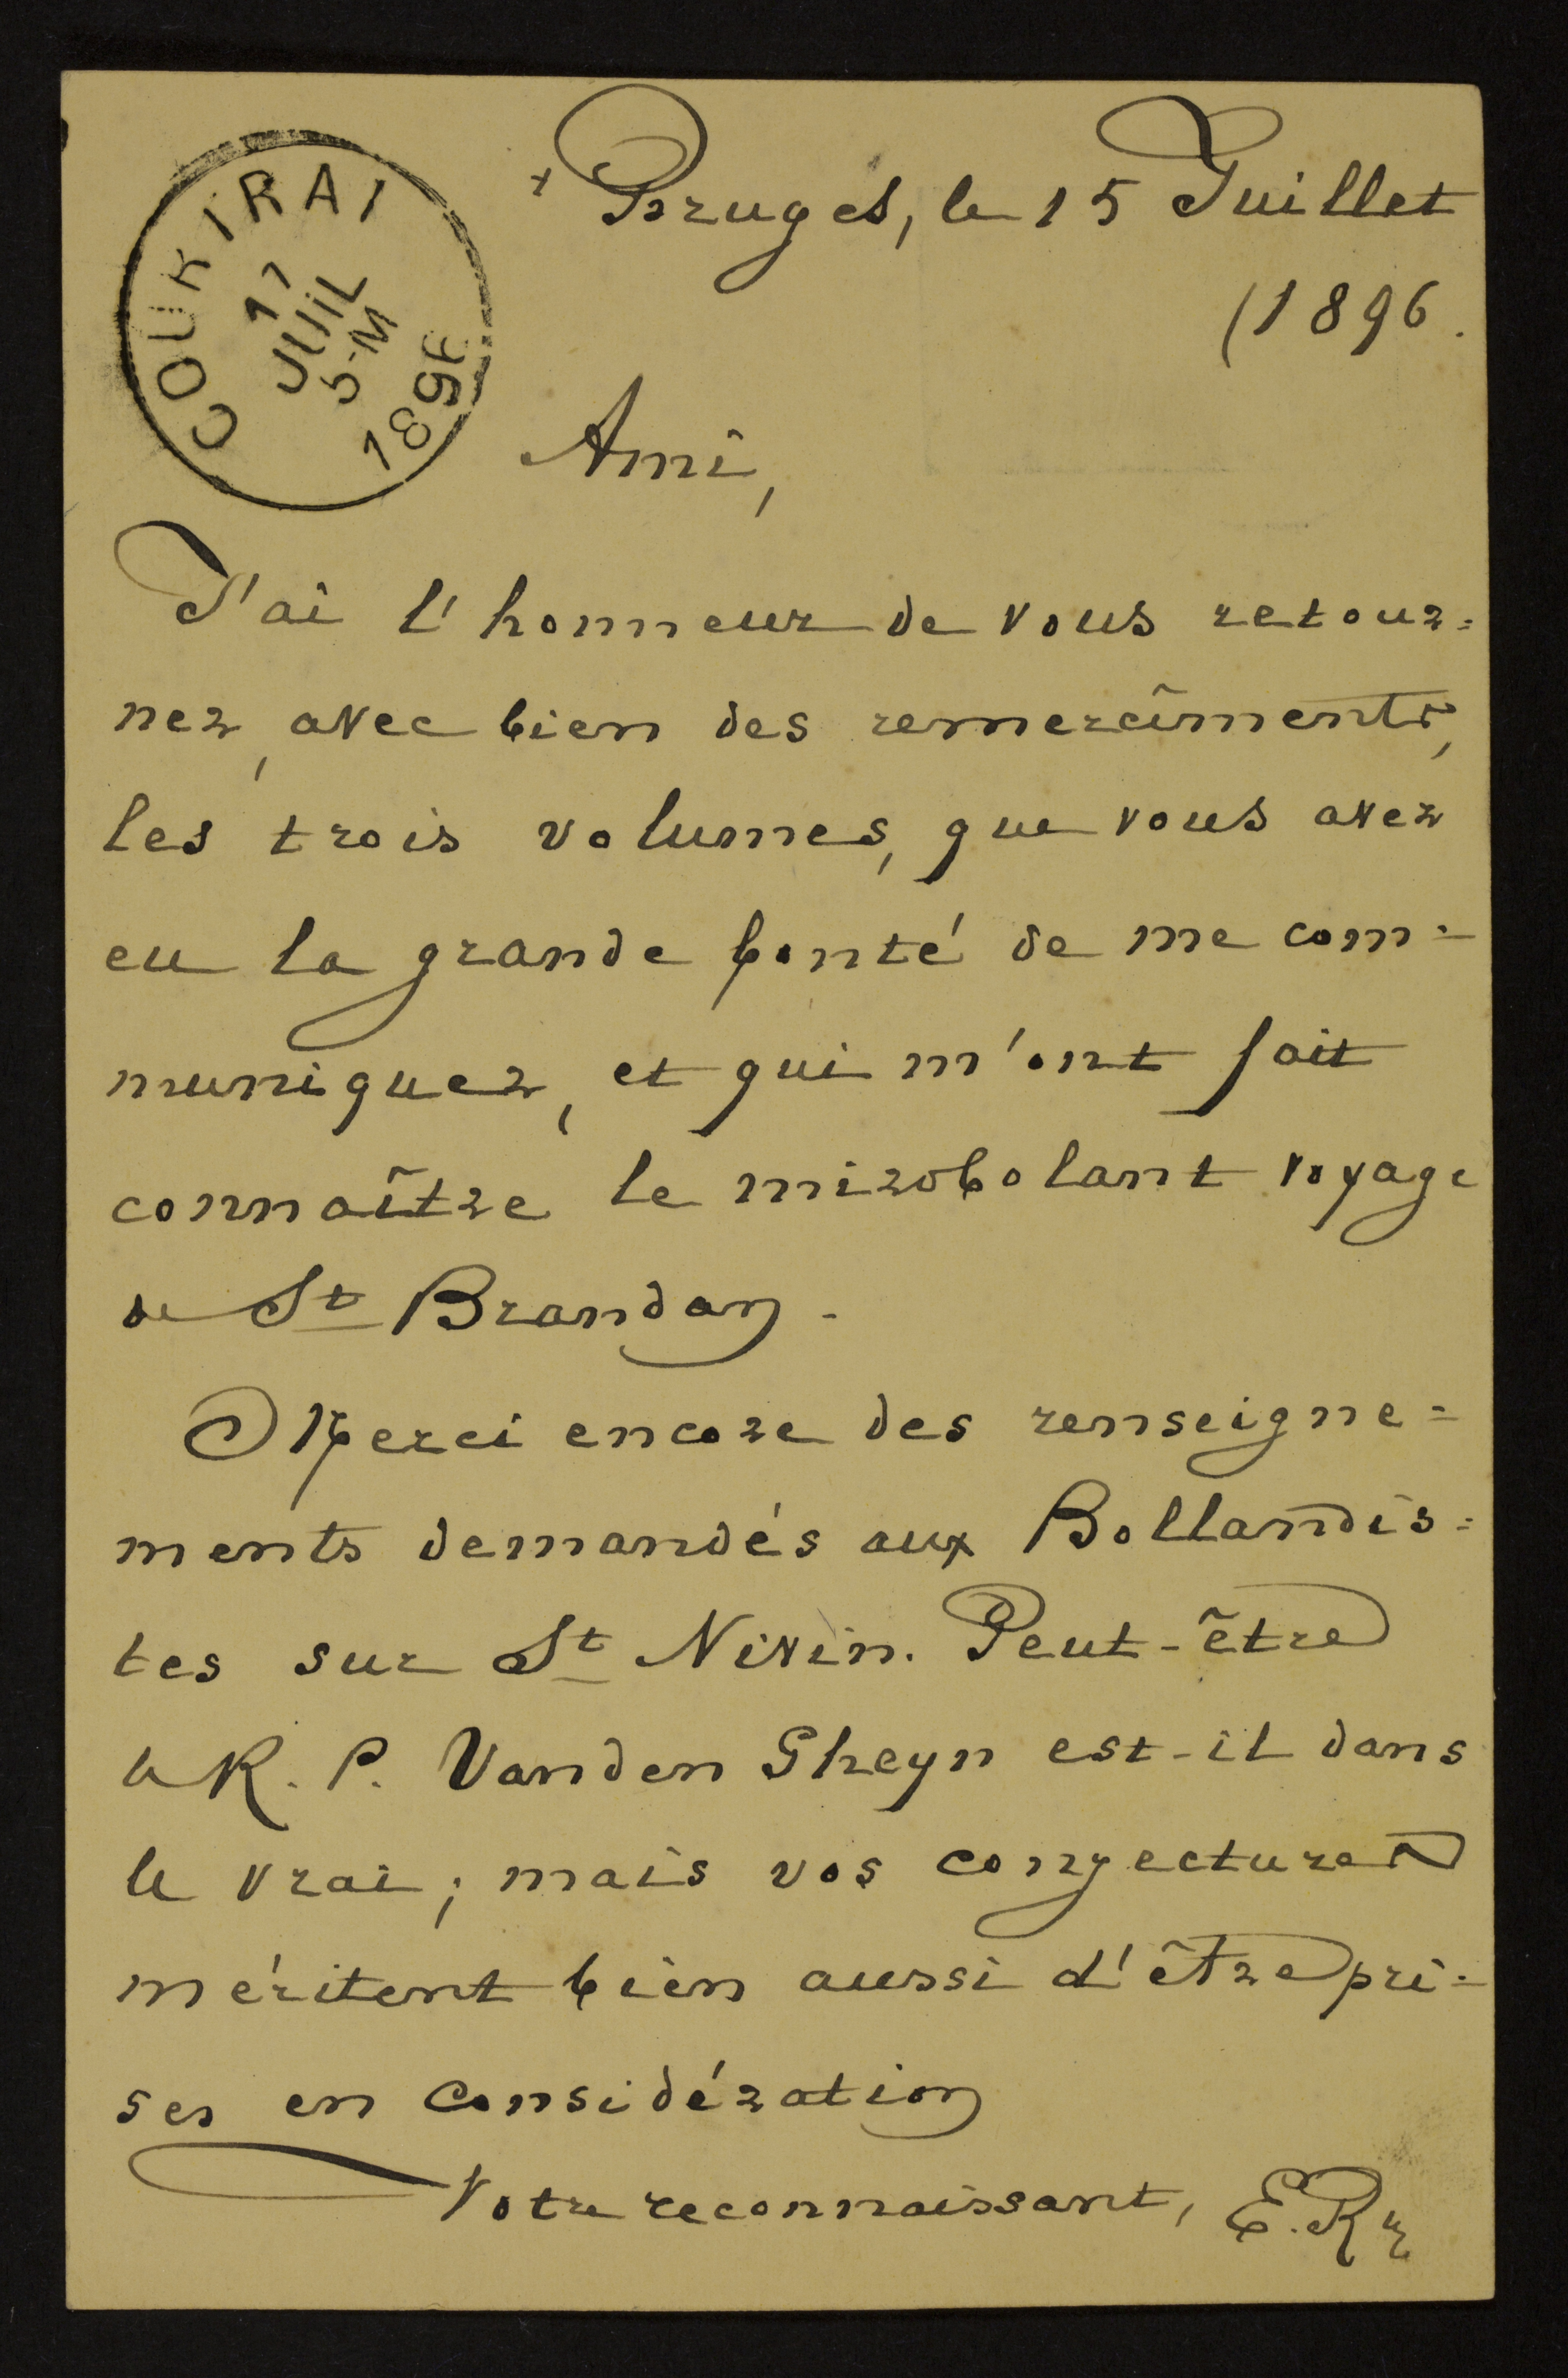 COURTRAI
17
JUIL
5-M
1896
+ Bruges, le 15 Juillet
(1896.
Ami,
J'ai l'honneur de vous retour=
ner, avec bien des remercîments,
les trois volumes, que vous avez
eu la grande bonté de me com=
muniquer, et qui m'ont fait
connaître le mirobolant voyage
de St Brandan.
Merci encore des renseigne=
ments demandés aux Bollandis=
tes sur St Nivin. Peut-être
le R. P. Vanden Gheyn est-il dans
le vrai; mais vos conjectures
méritent bien aussi d'être pri=
ses en considération
Votre reconnaissant,